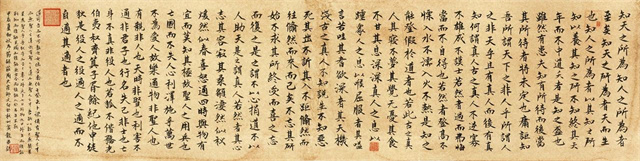 知天之所為知人之所為者
至矣知天之所為者天而生
也知人之所為者以其知之所
知以養其知之所不知終其天
年而不中道夭者是知之盛也
雖然有患夫知有所待而後當
其所待者特未定也庸詎知
吾所謂天之非人乎所謂人
之非天乎且有真人而後有真
知何謂真人古之真人不逆寡
不雄成不謨士若然者過而弗悔
當而不自得也若然者登高不
慄入水不濡入火不熱是知之
能登假於道者也若此古之真
人其寢不夢其覺無憂其食
不甘其息深深真人之息以
踵眾人之息以喉屈服者其嗌
言若哇其耆欲深者其天機
淺古之真人不知說生不知惡
死其出不訢其入不距翛然而
往翛然而來而已矣不忘其所
始不求其所終受而喜之忘
而復之是之謂不以心捐道不以
人助天是之謂真人若然者其心
志其容寂其顙頯淒然似秋
煖然似春喜怒通四時與物有
宜而莫知其極故聖人之用兵也
亡國而不失人心利澤施乎萬世
不為愛人故樂通物非聖人也
有親非仁也天時非賢也利害不
通非君子也行名失己非士也亡
身不真非役人也若狐不偕務光
伯夷叔齊箕子胥餘紀他申徒
狄是役人之役適人之適而不
自適其適者也